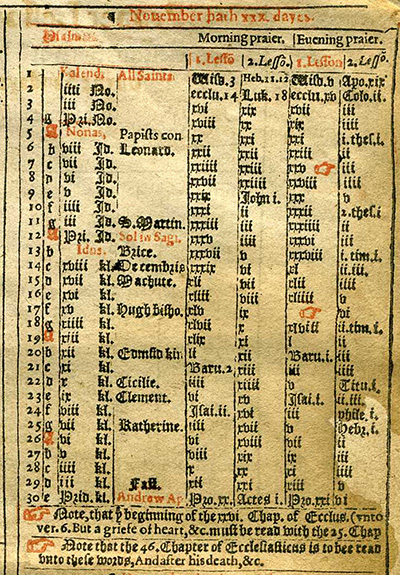 Nouember hath xxx. dayes.
Psalmes. Morning praier. Euening praier.
1. Lesso 2. Lessō. 1. Lesson 2. Lessō.
1 Kalend. All Saints Wisd. 3 Heb. 11. 12 Wisd. v Apo. xix
2 iiii No. ecclu. 14 Luk. 18 ecclu. xv Colo. ii.
3 iii No. xvi xix xvii iii
4 g Pri. No. xviii xx xix iiii
5 A Nonas. Papists con xx xxi xxi i. thes. i.
6 b viii Id. Leonard. xxii xxii xxiii ii
7 c vii Id. xxiiii xxiii xxv iii
8 d vi Id. xxvii xxiiii xxviii iiii
9 e v Id. xxix John i. xxx v
10 f iiii Id. xxxi ii xxxii 2. thes. i
11 g iii Id. S. Martin. xxxiii iii xxxiiii ii
12 A Pri. Id. Sol in Sagi. xxxv iiii xxxvi iii
13 b Idus. Brice. xxxvii v xxxviii i. tim. i.
14 c xviii kl. Decembris xxxix vi xl ii. iii.
15 d xvii kl. Machute. xli vii xlii iiii
16 e xvi kl. xliii viii xliiii v
17 f xv kl. Hugh bisho. xlv ix vi
18 g xiiii kl. xlvii x xlviii ii. tim. i.
19 A xiii kl. xlix xi l ii
20 b xii kl. Edmūd kin li xii Baru. i. iii
21 c xi kl. Baru. 2 xiii iii iiii
22 d x kl. Cicilie. iiii xiiii v Titu. i.
23 e ix kl. Clement. vi xv Isai. i. ii. iii.
24 f viii kl. Isai. ii. xvi iii phile. i.
25 g vii kl. Katherine. iiii xvii v Hebr. i.
26 A vi kl. vi xviii vii ii
27 b v kl. viii xix ix iii
28 c iiii kl. x xx xi iiii
29 d iii kl. Fast. xii xxi xiii v
30 e Prid. kl. Andrew Ap Pro. xx. Actes i. Pro. xxi vi
Note, that þe beginning of the xxvi. Chap. of Ecclus. (vnto
ver. 6. But a griefe of heart, &c. must be read with the 25. Chap
Note that the 46. Chapter of Ecclesiasticus is to bee read
vnto these words, And after his death, &c.